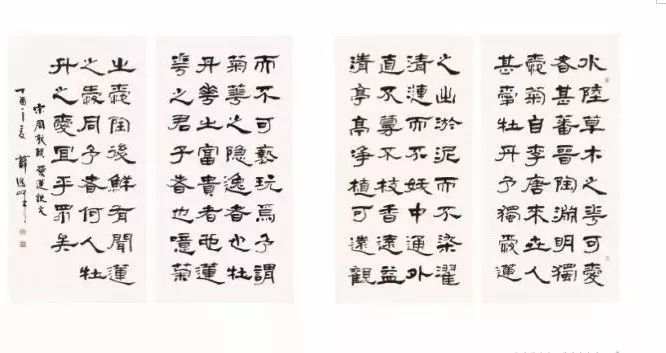 水陸草木之華可愛
者甚蕃晉陶淵明獨
愛菊自李唐來世人
甚愛牡丹予獨愛蓮
之出淤泥而不染濯
清漣而不妖中通外
直不蔓不枝香遠益
清亭亭淨植可遠觀
而不可褻玩焉予謂
菊華之隱逸者也牡
丹華之富貴者也蓮
華之君子者也噫菊
之愛陶後鮮有聞蓮
之愛同予者何人牡
丹之愛宜乎眾矣
宋周敦頤愛蓮說文
丁酉之夏